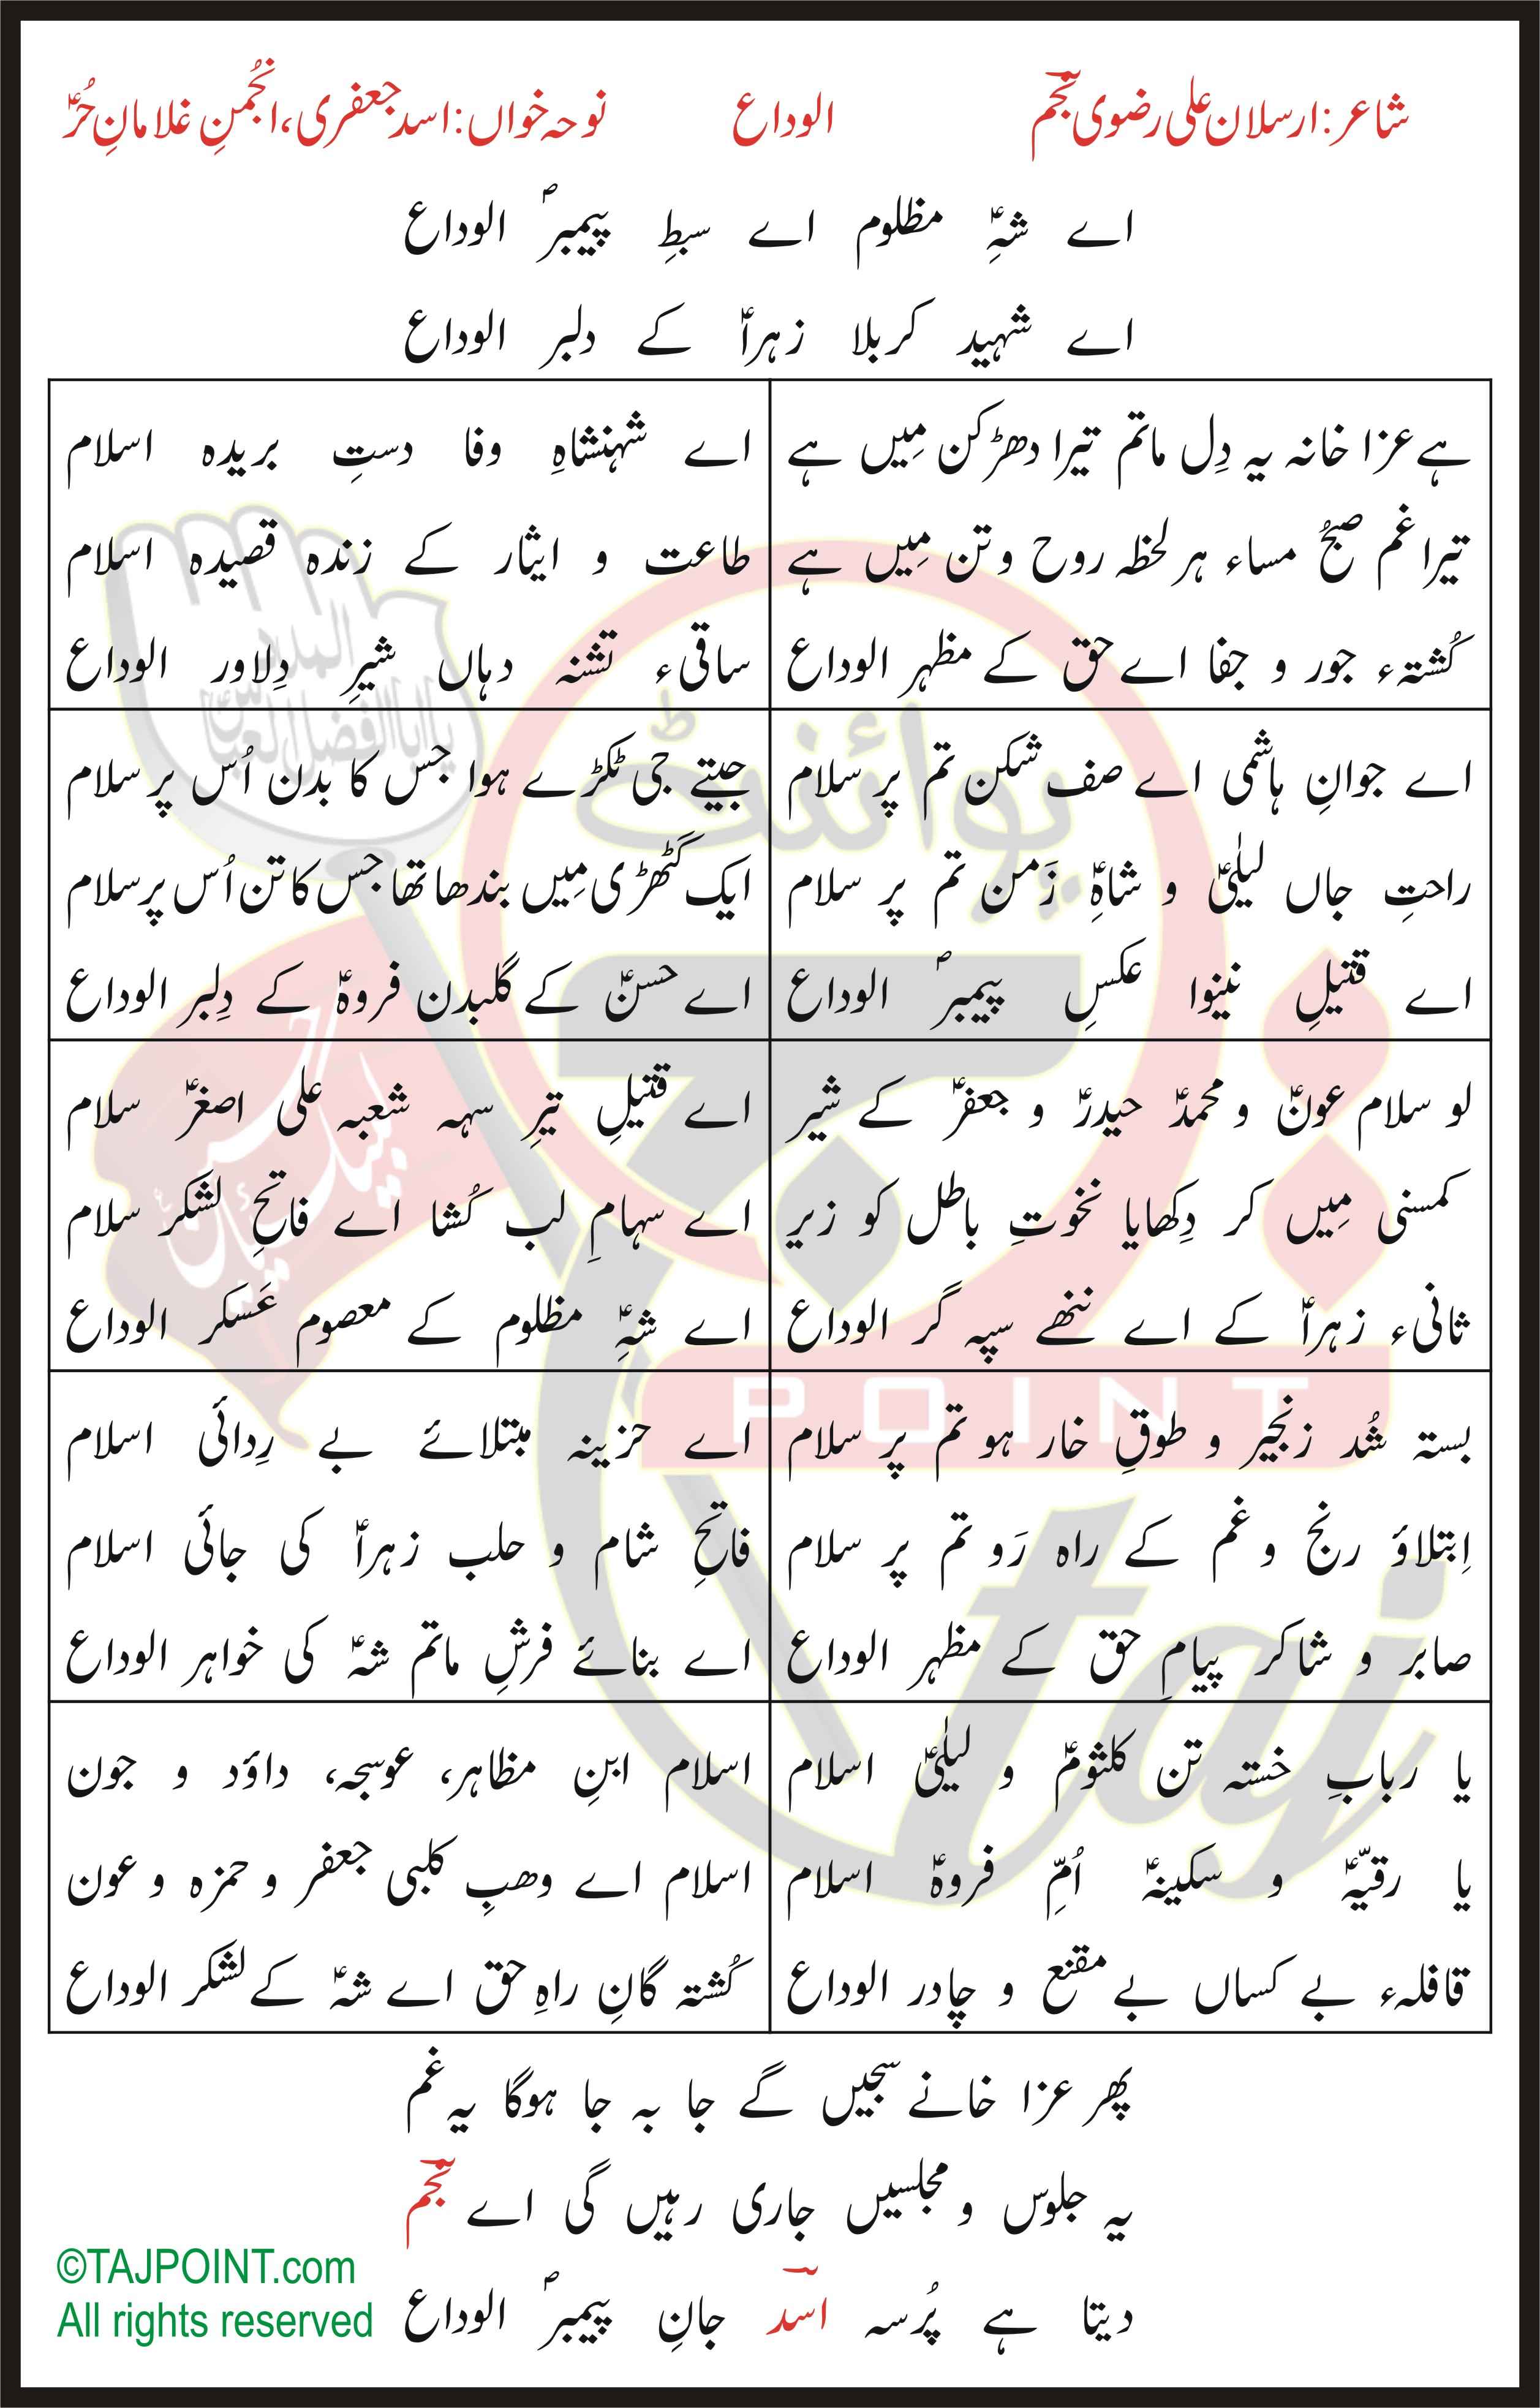 شاعر: ارسلان علی رضوی نجمؔ الوداع نوحہ خواں: اسد جعفری، انجمنِ غلامانِ حُرؑ
اے شہِؑ مظلوم اے سبطِ پیمبرؐ الوداع
اے شہید کربلا زہراؑ کے دلبر الوداع
ہے عزا خانہ یہ دِل ماتم تیرا دھڑکن مِیں ہے
تیرا غم صبحُ مساء ہر لحظہ روح و تن مِیں ہے
کُشتہء جور و جفا اے حق کے مظہر الوداع
اے شہنشاہِ وفا دستِ بریدہ اسلام
طاعت و ایثار کے زندہ قصیدہ اسلام
ساقیء تشنہ دہاں شیرِ دِلاور الوداع
اے جوانِ ہاشمی اے صف شکن تم پر سلام
راحتِ جاں لیلیٰؑ و شاہِؑ زَمن تم پر سلام
اے قتیلِ نینوا عکسِ پیمبرؐ الوداع
جیتے جی ٹکڑے ہوا جس کا بدن اُس پر سلام
ایک گٹھڑی مِیں بندھا تھا جس کا تن اُس پر سلام
اے حسنؑ کے گلبدن فروہؑ کے دِلبر الوداع
لو سلام عونؑ و محمدؑ حیدرؑ و جعفرؑ کے شیر
کمسنی مِیں کر دِکھایا نخوتِ باطل کو زیر
ثانیء زہراؑ کے اے ننھے سپہ گر الوداع
اے قتیلِ تیرِ سہہ شعبہ علی اصغرؑ سلام
اے سہامِ لب کُشا اے فاتحِ لشکر سلام
اے شہِؑ مظلوم کے معصوم عَسکر الوداع
بستہ شُد زنجیر و طوقِ خار ہو تم پر سلام
اِبتلاؤ رنج و غم کے راہ رَو تم پر سلام
صابر و شاکر پیامِ حق کے مظہر الوداع
اے حزینہ مبتلائے بے رِدائی اسلام
فاتحِ شام و حلب زہراؑ کی جائی اسلام
اے بنائے فرشِ ماتم شہؑ کی خواہر الوداع
یا ربابِ خستہ تن کلثومؑ و لیلیٰؑ اسلام
یا رقیّہؑ و سکینہؑ اُمِّ فروہؑ اسلام
قافلہء بے کساں بے مقنع و چادر الوداع
اسلام ابنِ مظاہر، عوسجہ، داؤد و جون
اسلام اے وھبِ کلبی جعفر و حمزہ و عون
کُشتہ گانِ راہِ حق اے شہؑ کے لشکر الوداع
پھر عزا خانے سجیں گے جا بہ جا ہوگا یہ غم
یہ جلوس و مجلسیں جاری رہیں گی اے نجمؔ
دیتا ہے پُرسہ اسدؔ جانِ پیمبرؐ الوداع
©TAJPOINT.com
All rights reserved
پوائنٹ
POINT
taj